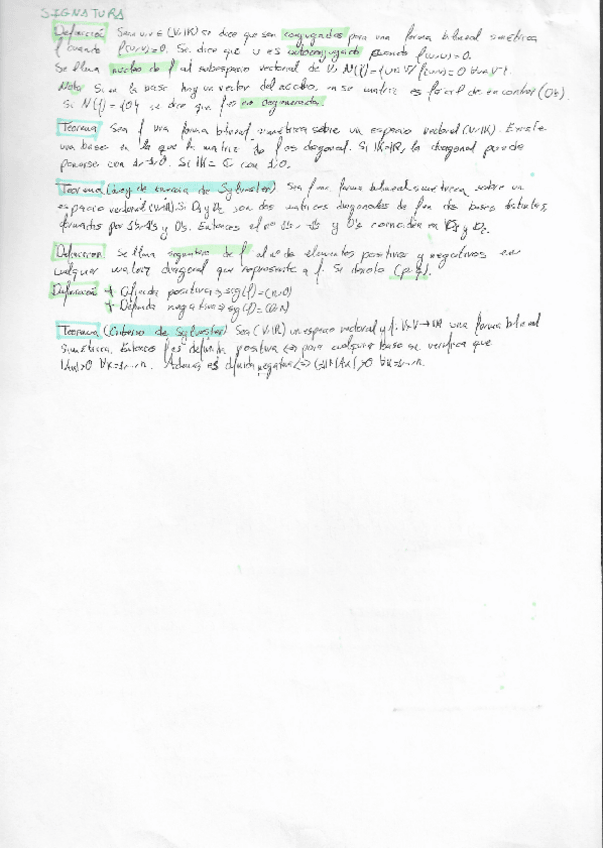 SIGNATURA
Definición Sean u,v ∈ (V,IK) se dice que son conjugados para una forma bilineal simétrica
f cuando f(u,v)=0. Se dice que u es autoconjugado cuando f(u,u)=0.
Se llama núcleo de f al subespacio vectorial de V, N(f)={u∈V/ f(u,v)=0 ∀v∈V}.
Nota Si en la base hay un vector del núcleo, en su matriz es fácil de encontrar (0's).
Si N(f)={0} se dice que f es no degenerada.
Teorema Sea f una forma bilineal simétrica sobre un espacio vectorial (V,IK). Existe
una base en la que la matriz de f es diagonal. Si IK=IR, la diagonal puede
ponerse con 1,-1,0. Si IK=C con 1,0.
Teorema (Ley de inercia de Sylvester) Sea f una forma bilineal simétrica sobre un
espacio vectorial (V,IR). Si D₁ y D₂ son dos matrices diagonales de f en dos bases distintas,
formadas por 1's, -1's y 0's. Entonces el nº 1's, -1's y 0's coinciden en D₁ y D₂.
Definición Se llama signatura de f al nº de elementos positivos y negativos en
cualquier matriz diagonal que represente a f. Se denota (p,q).
Definición + Definida positiva ⇒ sig(f)=(n,0)
+ Definida negativa ⇒ sig(f)=(0,n)
Teorema (Criterio de Sylvester) Sea (V,IR) un espacio vectorial y f: VxV→IR una forma bilineal
simétrica. Entonces f es definida positiva ⇔ para cualquier base se verifica que
|Aₖ|>0 ∀k=1,...,n. Además es definida negativa ⇔ (-1)ᵏ|Aₖ|>0 ∀k=1,...,n.